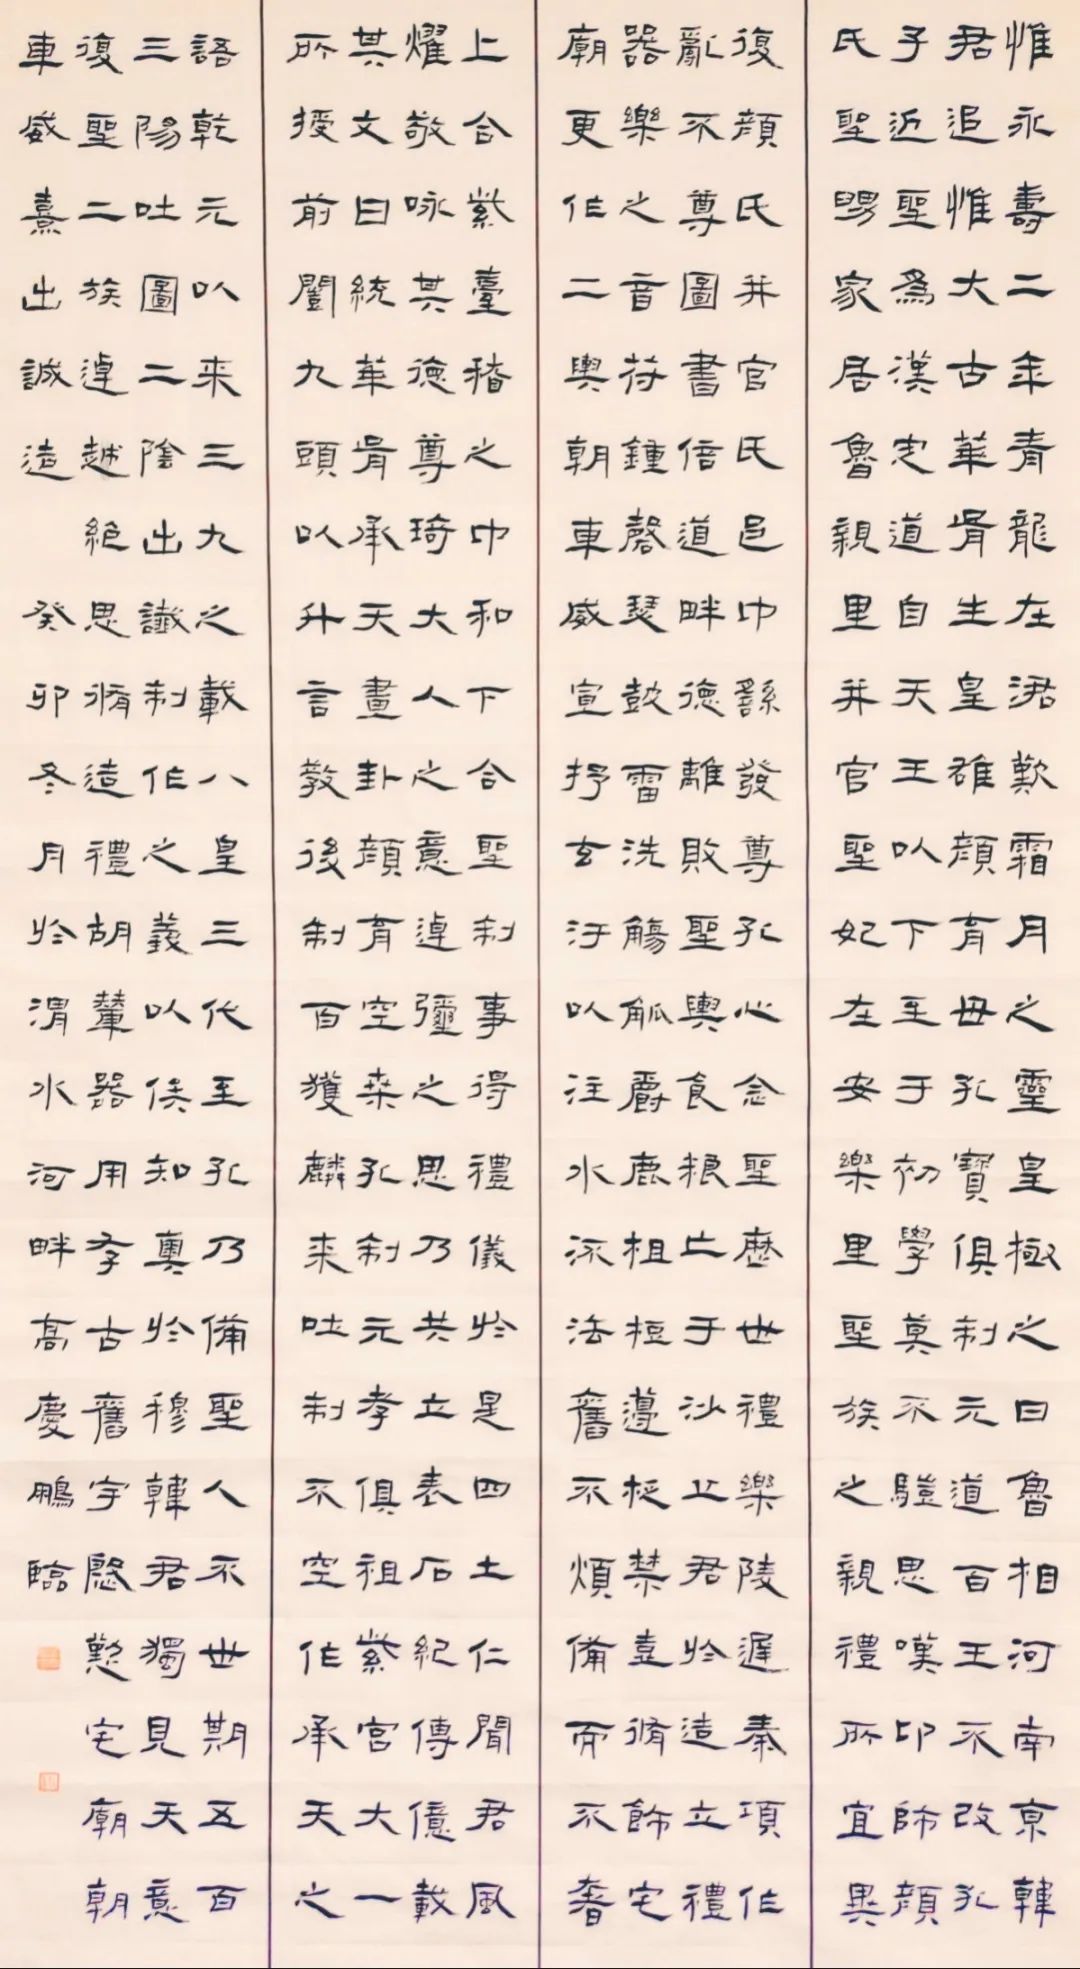 惟永壽二年青龍在涒歎霜月之靈皇極之日魯相河南京韓
君追惟大古華胥生皇雄顏育毋孔寶俱制元道百王不改孔
子近聖爲漢定道自天王以下至于初學莫不驥思嘆卬師顏
氏聖舅家居魯親里并官聖妃在安樂里聖族之親禮所宜異
復顏氏并官氏邑中繇發尊孔心念聖歷世禮樂陵遲秦項作
亂不尊圖書倍道畔德離敗聖輿食粮亡于沙丘君於造立禮
器樂之音符鍾磬瑟鼓雷洗觴觚爵鹿柤梪籩柉禁壺脩飾宅
廟更作二輿朝車威宣抒玄汙以注水流法舊不煩備而不奢
上合紫臺稽之中和下合聖制事得禮儀於是四土仁聞君風
燿敬咏其德尊琦大人之意逴彌之思乃共立表石紀傳億載
其文曰統華胥承天畫卦顏育空桑孔制元孝俱祖紫宮大一
所授前闓九頭以升言教後制百獲麟來吐制不空作承天之
語乾元以來三九之載八皇三代至孔乃備聖人不世期五百
三陽吐圖二陰出讖制作之義以俟知奧於穆韓君獨見天意
復聖二族逴越絕思脩造禮胡輦器用存古舊宇慇懃宅廟朝
車威熹出誠造 癸卯冬月於渭水河畔高慶鵬臨